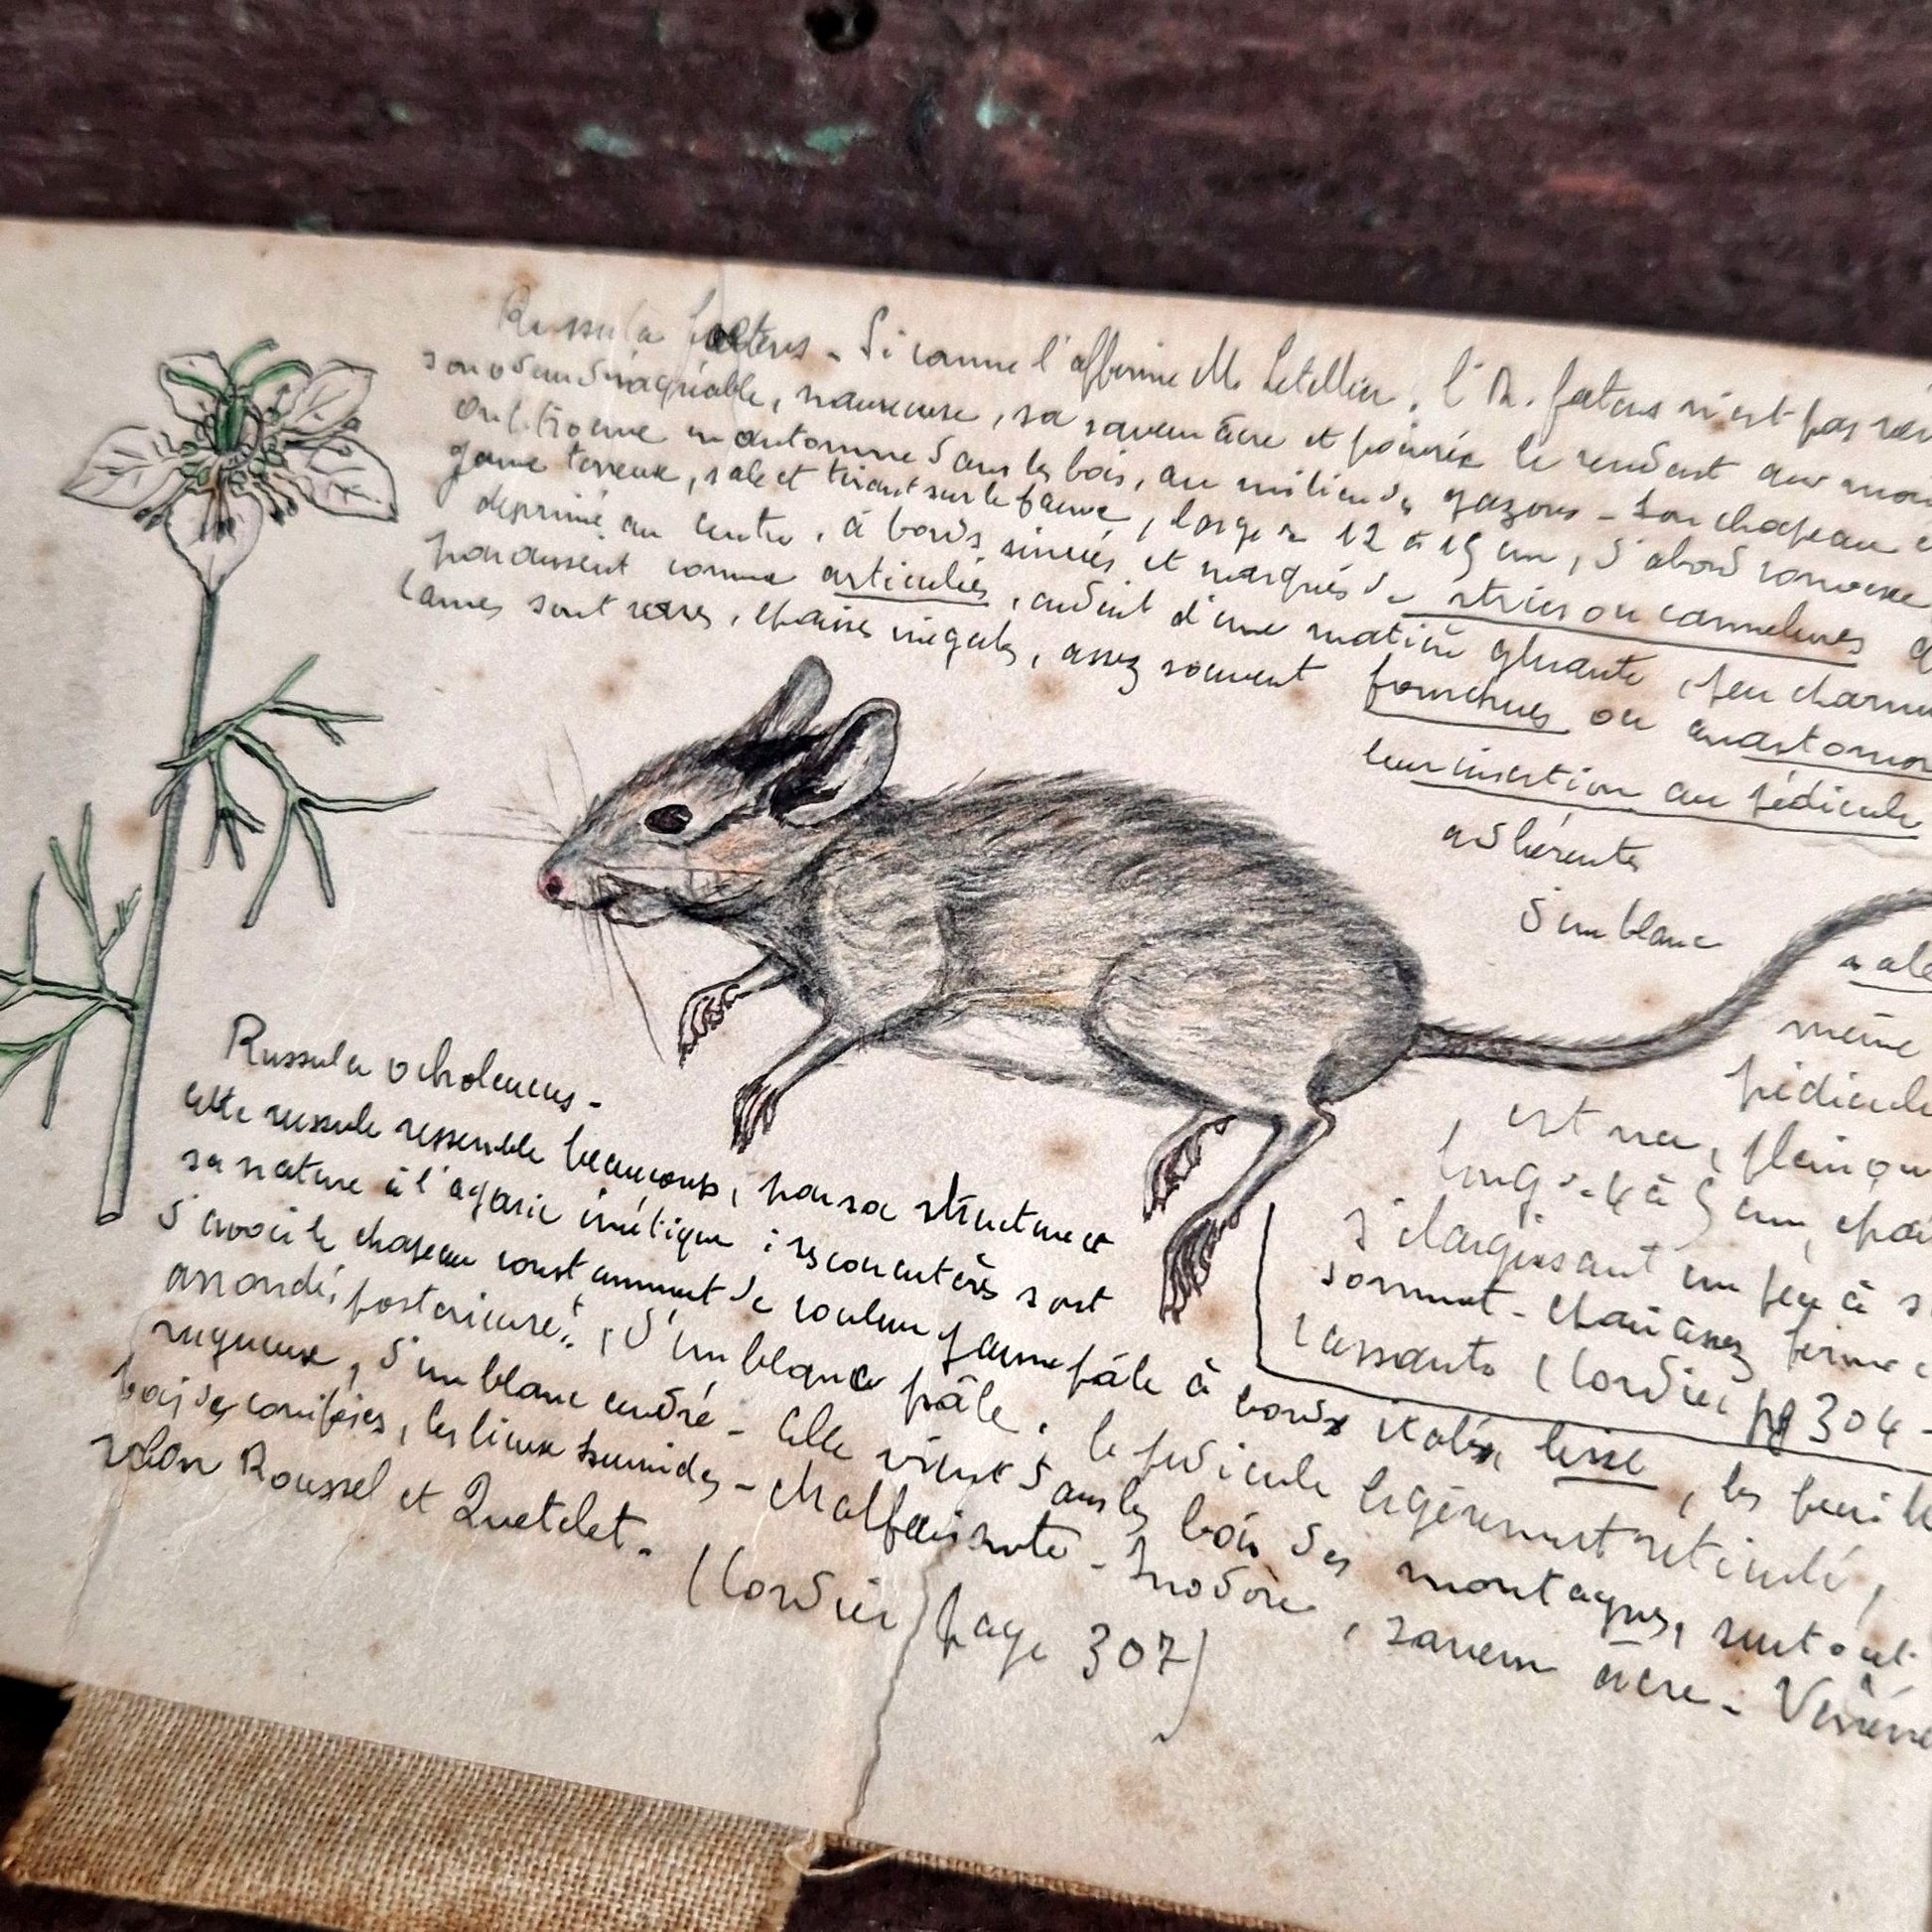 Russula foetens - Si comme l'affirme M. Letellier, l'R. foetens n'est pas
son odeur désagréable, nauséeuse, sa saveur âcre et poivrée le rendent
on le trouve en automne dans les bois, au milieu des gazons - Son chapeau
jaune terreux, sale et tirant sur le fauve, large de 12 à 15 cm, d'abord convexe
déprimé au centre, à bords sinués et marqués de stries ou cannelures
paraissent comme articulées, enduit d'une matière gluante, peu charnu
lames sont rares, épaisses inégales, assez souvent fourchues ou anastomo
leur insertion au pédicule
adhérente
d'un blanc
même
pédicule
est nu, plein ou
long de 4 à 5 cm,
s'élargissant un peu à s
sommet - Chair assez ferme
cassante (Cordier pg 304 -
Russula ochroleucus -
Cette russule ressemble beaucoup, par sa structure et
sa nature à l'agaric émétique ; ses caractères sont
d'avoir le chapeau constamment de couleur jaune pâle à bords étalés lisse, les feuille
arrondi, postérieuret, d'un blanc pâle, le pédicule légèrement réticulé,
rugueux, d'un blanc cendré - Elle vient dans les bois des montagnes, surtout
bois de conifères, les lieux humides - Malfaisante - Inodore, saveur âcre - Véné
selon Roussel et Quetelet -
(Cordier page 307)